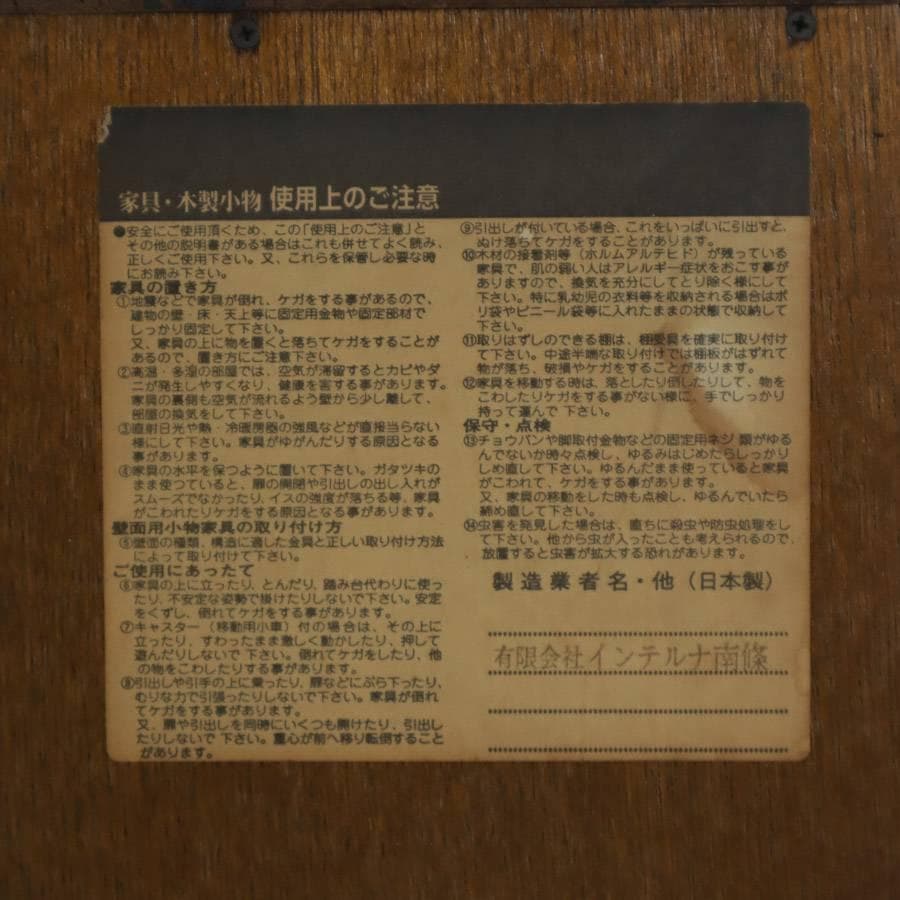 家具・木製小物 使用上のご注意
●安全にご使用頂くため、この「使用上のご注意」と
その他の説明書がある場合はこれも併せてよく読み、
正しくご使用下さい。又、これらを保管し必要な時
にお読み下さい。
家具の置き方
①地震などで家具が倒れ、ケガをする事があるので、
建物の壁・床・天上等に固定用金物や固定部材で
しっかり固定して下さい。
又、家具の上に物を置くと落ちてケガをすることが
あるので、置き方にご注意下さい。
②高温・多湿の部屋では、空気が滞留するとカビやダ
ニが発生しやすくなり、健康を害する事があります。
家具の裏側も空気が流れるよう壁から少し離して、
部屋の換気をして下さい。
③直射日光や熱・冷暖房器の強風などが直接当らない
様にして下さい。家具がゆがんだりする原因となる
事があります。
④家具の水平を保つように置いて下さい。ガタツキの
まま使つていると、扉の開閉や引出しの出し入れが
スムーズでなかったり、イスの強度が落ちる等、家具
がこわれたりケガをする原因となる事があります。
壁面用小物家具の取り付け方
⑤壁面の種類、構造に適した金具と正しい取り付け方法
によって取り付けて下さい。
ご使用にあったて
⑥家具の上に立ったり、とんだり、踏み台代わりに使っ
たり、不安定な姿勢で掛けたりしないで下さい。安定
をくずし、倒れてケガをする事があります。
⑦キャスター（移動用小車）付の場合は、その上に
立ったり、すわったまま激しく動かしたり、押して
遊んだりしないで 下さい。倒れてケガをしたり、他
の物をこわしたりする事があります。
⑧引出しや引手の上に乗ったり、扉などにぶら下ったり、
むりな力で引張ったりしないで下さい。家具が倒れ
てケガをする事があります。
又、扉や引出しを同時にいくつも開けたり、引出し
たりしないで 下さい。重心が前へ移り転倒すること
があります。
⑨引出しが付いている場合、これをいっぱいに引出すと、
ぬけ落ちてケガをすることがあります。
⑩木材の接着剤等（ホルムアルテヒド）が残っている
家具で、肌の弱い人はアレルギー症状をおこす事が
ありますので、換気を充分にしてとり除く様にして
下さい。特に乳幼児の衣料等を収納される場合はポ
リ袋やビニール袋等に入れたままの状態で収納して
下さい。
⑪取りはずしのできる棚は、棚受具を確実に取り付け
て下さい。中途半端な取り付けでは棚板がはずれて
物が落ち、破損やケガをすることがあります。
⑫家具を移動する時は、落としたり倒したりして、物を
こわしたりケガをする事がない様に、手でしっかり
持って運んで 下さい。
保守・点検
⑬チョウバンや脚取付金物などの固定用ネジ 類がゆる
んでないか時々点検し、ゆるみはじめたらしっかり
しめ直して下さい。ゆるんだまま使っていると家具
がこわれて、ケガをする事があります。
又、家具の移動をした時も点検し、ゆるんでいたら
締め直して下さい。
⑭虫害を発見した場合は、直ちに殺虫や防虫処理をし
て下さい。他から虫が入ったことも考えられるので、
放置すると虫害が拡大する恐れがあります。
製造業者名・他（日本製）
有限会社インテルナ南條